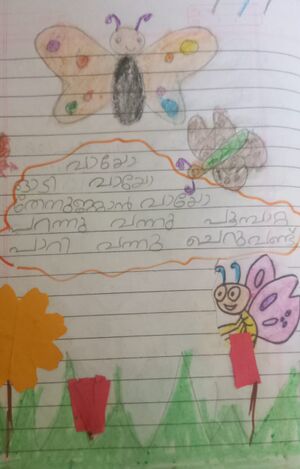 വായോ
ഓടി വായോ
തേനുണ്ണാൻ വായോ
പറന്നു വന്നു പൂമ്പാറ്റ
പാറി വന്നു ചെറുവണ്ട്